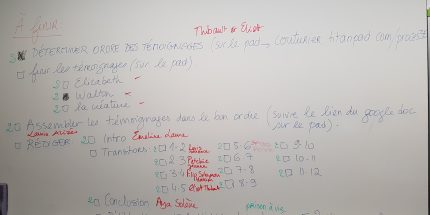 À FINIR:
Thibault et Eliot
2 □ DÉTERMINER ORDRE DES TÉMOIGNAGES (sur le pad → couturier titanpad com/
□ finir les témoignages (sur le pad)
2 □ Elizabeth -
2 Walton -
2 □ la créature -
2 □ Assembler les témoignages dans le bon ordre (suivre le lien du google doc
sur le pad).
□ RÉDIGER 2 □ Intro Emeline
□ Transitions: 2 □ 1-2 2 □ 5-6 2 □ 9-10
2 □ 2-3 2 □ 6-7 2 □ 10-11
2 □ 3-4 2 □ 7-8 2 □ 11-12
2 □ 4-5 Eliot Thibault 2 □ 8-9
2 □ Conclusion Solène